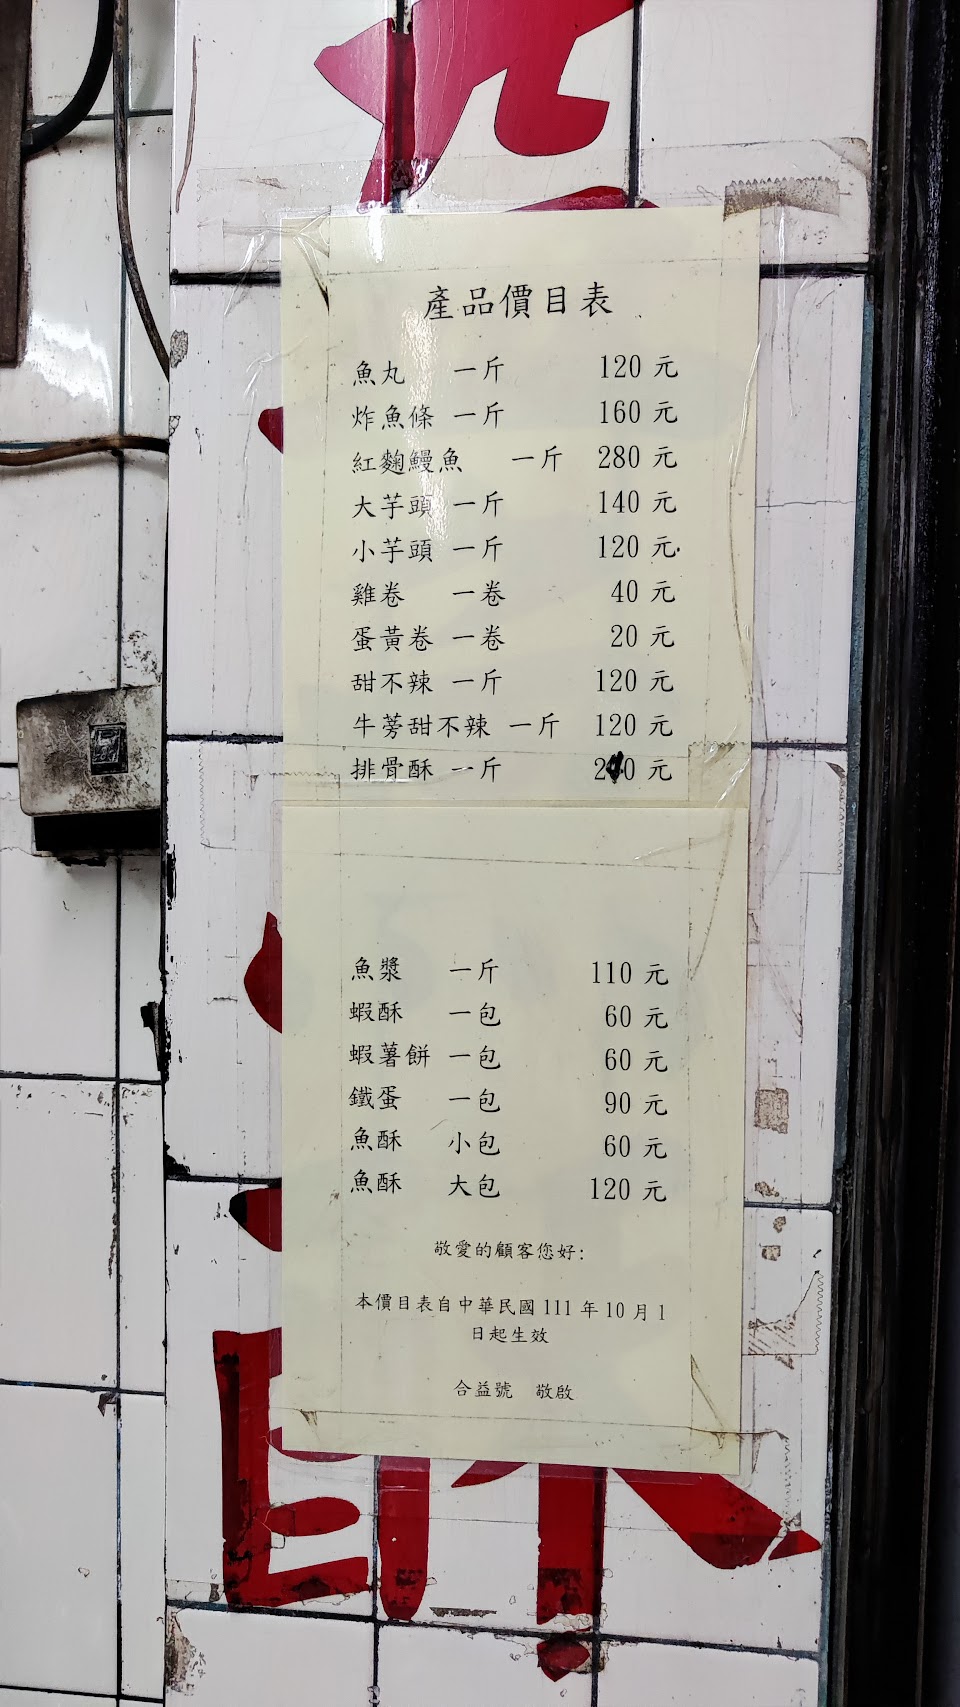 產品價目表
魚丸 一斤 120 元
炸魚條 一斤 160 元
紅麴鰻魚 一斤 280 元
大芋頭 一斤 140 元
小芋頭 一斤 120 元
雞卷 一卷 40 元
蛋黃卷 一卷 20 元
甜不辣 一斤 120 元
牛蒡甜不辣 一斤 120 元
排骨酥 一斤 元
魚漿 一斤 110 元
蝦酥 一包 60 元
蝦薯餅 一包 60 元
鐵蛋 一包 90 元
魚酥 小包 60 元
魚酥 大包 120 元
敬愛的顧客您好:
本價目表自中華民國 111 年 10 月 1
日起生效
合益號 敬啟